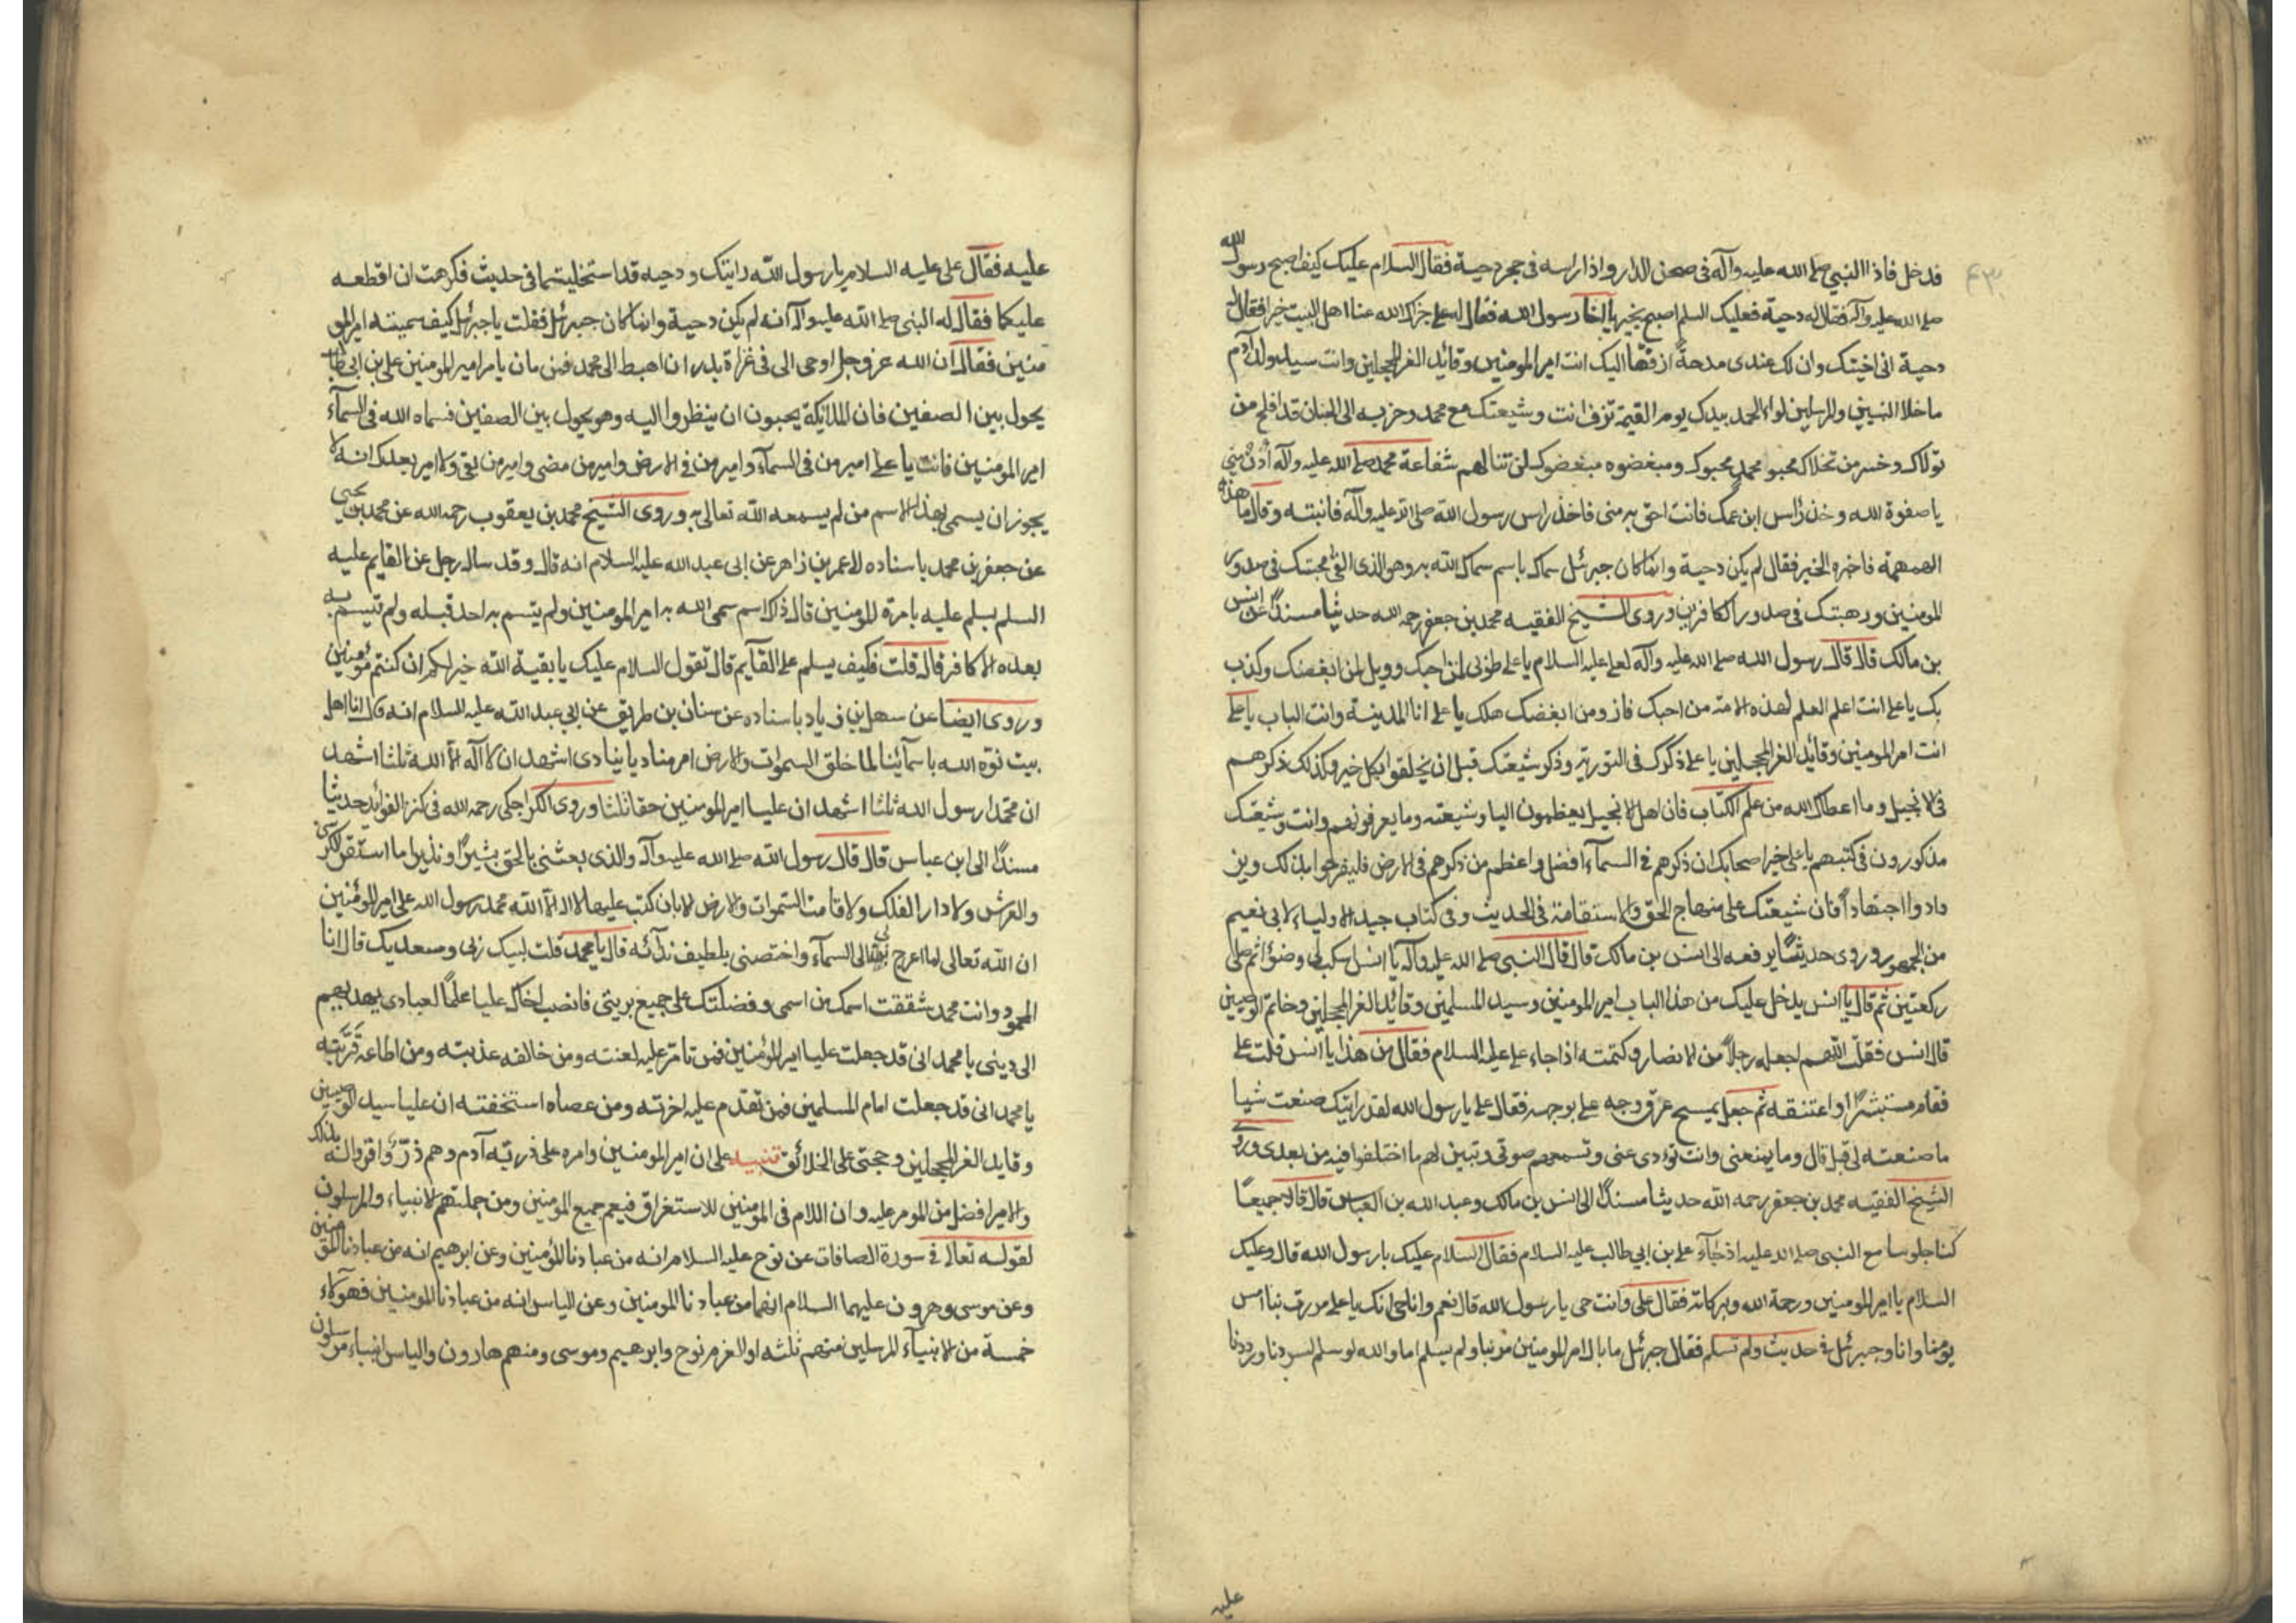 فدخل فاذا النبي صلى الله عليه وآله في صحن الدار واذا راسه في حجر دحية فقال السلام عليك كيف اصبح رسول الله
صلى الله عليه وآله فقال له دحية فعليك السلم اصبح بخير يا اخا رسول الله فقال له علي جزاك الله عنا اهل البيت خيرا فقال له
دحية اني احبتك وان لك عندي مدحة ازفها اليك انت امير المومنين وقائد الغر المحجلين وانت سيد ولد آدم
ما خلا النبيين والمرسلين لواء الحمد بيدك يوم القيمة تزف انت وشيعتك مع محمد وحزبه الى الجنان قد افلح من
تولاك وخسر من تخلاك محبو محمد محبوك ومبغضوه مبغضوك لن تنالهم شفاعة محمد صلى الله عليه وآله ادن مني
يا صفوة الله وخذ راس ابن عمك فانت احق به مني فاخذ راس رسول الله صلى الله عليه وآله فانبته وقال ما هذه
الهمهمة فاخبره الخبر فقال لم يكن دحية وانما كان جبرئل سماك باسم سماك الله به وهو الذي القى محبتك في صدور
المومنين ورهبتك في صدور الكافرين وروى الشيخ الفقيه محمد بن جعفر رحمه الله حديثا مسندا عن انس
بن مالك قال قال رسول الله صلى الله عليه وآله لعلي عليه السلام يا علي طوبى لمن احبك وويل لمن ابغضك وكذب
بك يا علي انت اعلم العلم لهذه الامة من احبك فاز ومن ابغضك هلك يا علي انا المدينة وانت الباب يا علي
انت امير المومنين وقائد الغر المحجلين يا علي ذكرك في التورية وذكر شيعتك قبل ان يخلقوا بكل خير وكذلك ذكرهم
في الانجيل وما اعطاك الله من علم الكتاب فان اهل الانجيل يعظمون اليا وشيعته وما يعرفونهم وانت وشيعتك
مذكورون في كتبهم يا علي خبر اصحابك ان ذكرهم في السمآء افضل واعظم من ذكرهم في الارض فليفرحوا بذلك وين
دادوا اجتهادا فان شيعتك على منهاج الحق والاستقامة في الحديث وفي كتاب حيد الاولياء لابي نعيم
من الجمهور وروى حديثا يرفعه الى انس بن مالك قال قال النبي صلى الله عليه وآله يا انس اسكب لي وضوءا ثم صلى
ركعتين ثم قال يا انس يدخل عليك من هذا الباب امير المومنين وسيد المسلمين وقائد الغر المحجلين وخاتم الوصيين
قال انس فقلت اللهم اجعله رجلا من الانصار وكتمته اذا جاء علي عليه السلام فقال من هذا يا انس قلت علي
فقام مستبشرا واعتنقه ثم جعل يمسح عرق وجه علي بوجهه فقال علي يا رسول الله لقد رايتك صنعت شيا
ما صنعته لي قبل قال وما يمنعني وانت تودي عني وتسمعهم صوتي وتبين لهم ما اختلفوا فيه من بعدي وروى
الشيخ الفقيه محمد بن جعفر رحمه الله حديثا مسندا الى انس بن مالك وعبد الله بن العباس قال قالا جميعا
كنا جلوسا مع النبي صلى الله عليه اذ جآء علي بن ابي طالب عليه السلام فقال السلام عليك يا رسول الله قال وعليك
السلام يا امير المومنين ورحمة الله وبركاته فقال علي وانت حي يا رسول الله قال نعم وانا حي انك يا علي مررت بنا امس
يومنا وانا وجبرئل في حديث ولم تسلم فقال جبرئل ما بال امير المومنين مر بنا ولم يسلم اما والله لو سلم لسررنا ورددنا
عليه
عليه فقال علي عليه السلام يا رسول الله رايتك ودحيه قد استخليتما في حديث فكرهت ان اقطعه
عليكما فقال له النبي صلى الله عليه وآله انه لم يكن دحية وانما كان جبرئل فقلت يا جبرئل كيف سميته امير المو
منين فقال ان الله عز وجل اوحى الي في غزاة بدر ان اهبط الى محمد فمن مان يامر امير المومنين علي بن ابي طالب
يجول بين الصفين فان الملائكة يحبون ان ينظروا اليه وهو يجول بين الصفين فسماه الله في السمآء
امير المومنين فانت يا علي امير من في السمآء وامير من في الارض وامير من مضى وامير من بقي ولا امير بعدك انه لا
يجوز ان يسمى بهذا الاسم من لم يسمعه الله تعالى به وروى الشيخ محمد بن يعقوب رحمه الله عن محمد بن يحيى
عن جعفر بن محمد باسناده الى عمر بن زاهر عن ابي عبد الله عليه السلام انه قال وقد ساله رجل عن القايم عليه
السلم يسلم عليه بامرة المومنين قال ذاك اسم سمى الله به امير المومنين ولم يتسم به احد قبله ولم تيسم به
بعده الا كافر قال قلت فكيف يسلم على القآيم قال تقول السلام عليك يا بقية الله خير لكم ان كنتم مؤمنين
وروى ايضا عن سهل بن زياد باسناده عن سنان بن طريق عن ابي عبد الله عليه السلام انه قال انا اهل
بيت نوه الله باسمآئنا لما خلق السموات والارض امر مناديا ينادي اشهد ان لا آله الا الله ثلثا اشهد
ان محمدا رسول الله ثلثا اشهد ان عليا امير المومنين حقا ثلثا وروى الكراجكي رحمه الله في كنز الفوائد حديثا
مسندا الى ابن عباس قال قال رسول الله صلى الله عليه وآله والذي بعثني بالحق بشيرا ونذيرا ما استقر الكرسي
والعرش ولا دار الفلك ولا قامت السموات والارض الا بان كتب عليها لا اله الا الله محمد رسول الله علي امير المؤمنين
ان الله تعالى لما اعرج بي الى السمآء واختصني بلطيف ندآئه قال يا محمد قلت لبيك ربي وسعديك قال انا
المحمود وانت محمد شققت اسمك من اسمي وفضلتك على جميع بريتي فانصب اخاك عليا علما لعبادي يهديهم
الى ديني يا محمد اني قد جعلت عليا امير المؤمنين فمن تامر عليه لعنته ومن خالفه عذبته ومن اطاعه قربته
يا محمد اني قد جعلت امام المسلمين فمن تقدم عليه اخرته ومن عصاه استخفته ان عليا سيد الوصيين
وقايد الغر المحجلين وحجتي على الخلائق تنبيه على ان امير المومنين وامره على ذرية آدم وهم ذر واقروا له بذلك
والامير افضل من المومر عليه وان اللام في المومنين للاستغراق فيعم جميع المومنين ومن جملتهم الانبياء والمرسلون
لقوله تعالى في سورة الصافات عن نوح عليه السلام انه من عبادنا المؤمنين وعن ابرهيم انه من عبادنا المؤمنين
وعن موسى وهرون عليهما السلام انهما من عبادنا المومنين وعن الياس انه من عبادنا المومنين فهوآلاء
خمسة من الانبيآء المرسلين منهم ثلثه اولا لعزم نوح وابرهيم وموسى ومنهم هارون والياس انبياء مرسلون